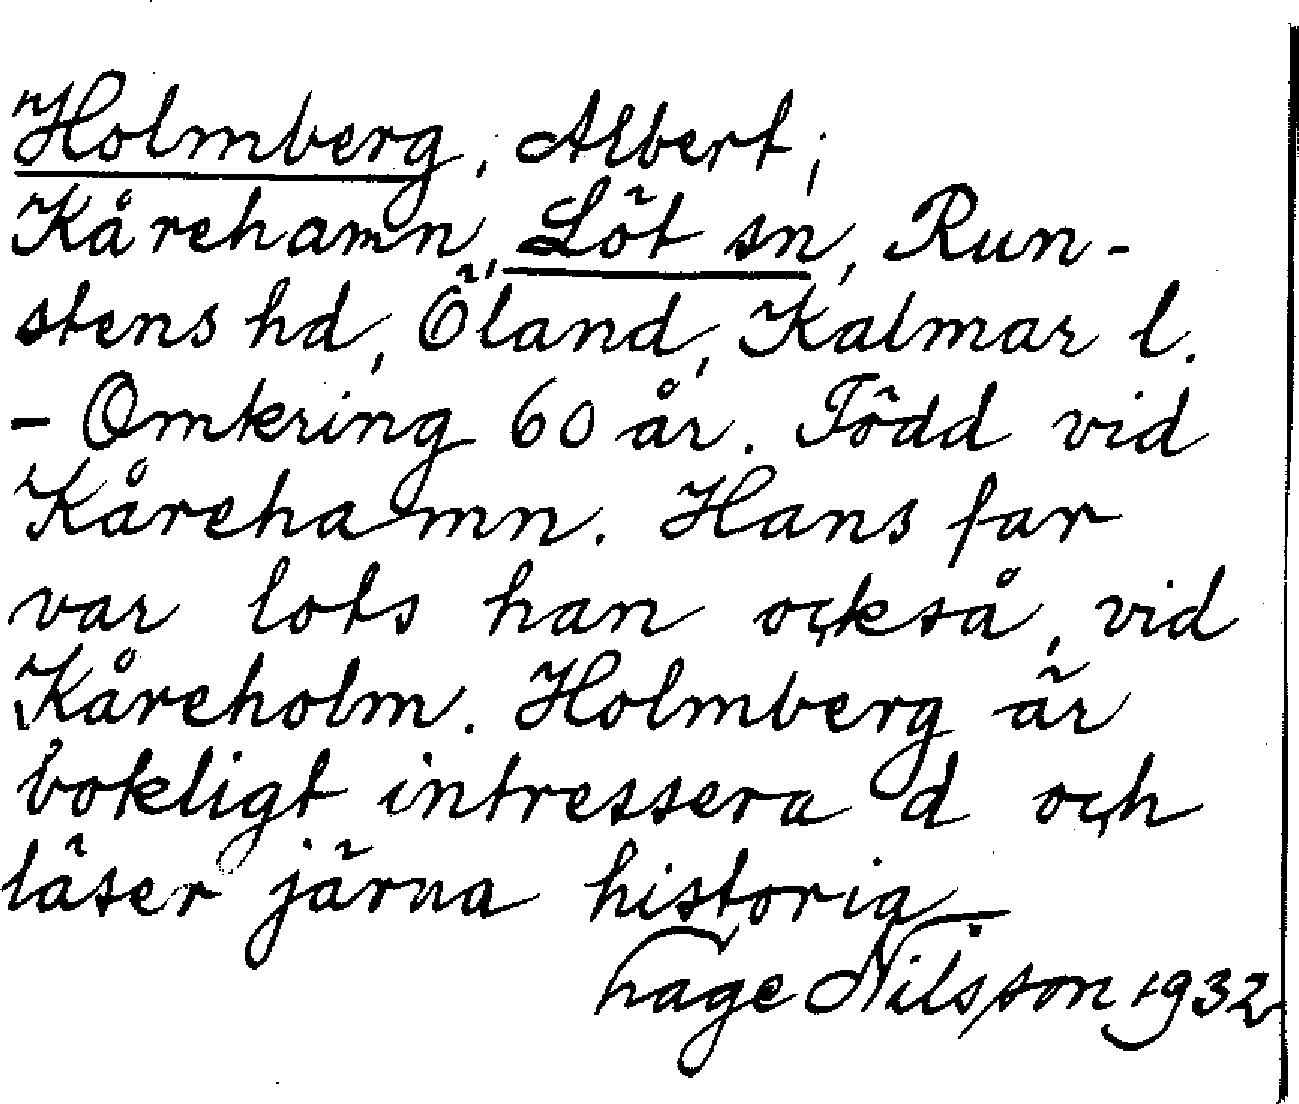 Holmberg, Albert,
Kårehamn, Löt sn, Run-
stens hd, Öland, Kalmar l.
- Omkring 60 år. Född vid
Kårehamn. Hans far
var lots han också, vid
Kåreholm. Holmberg är
bokligt intresserad och
läser järna historia
hage Nilsson 1932